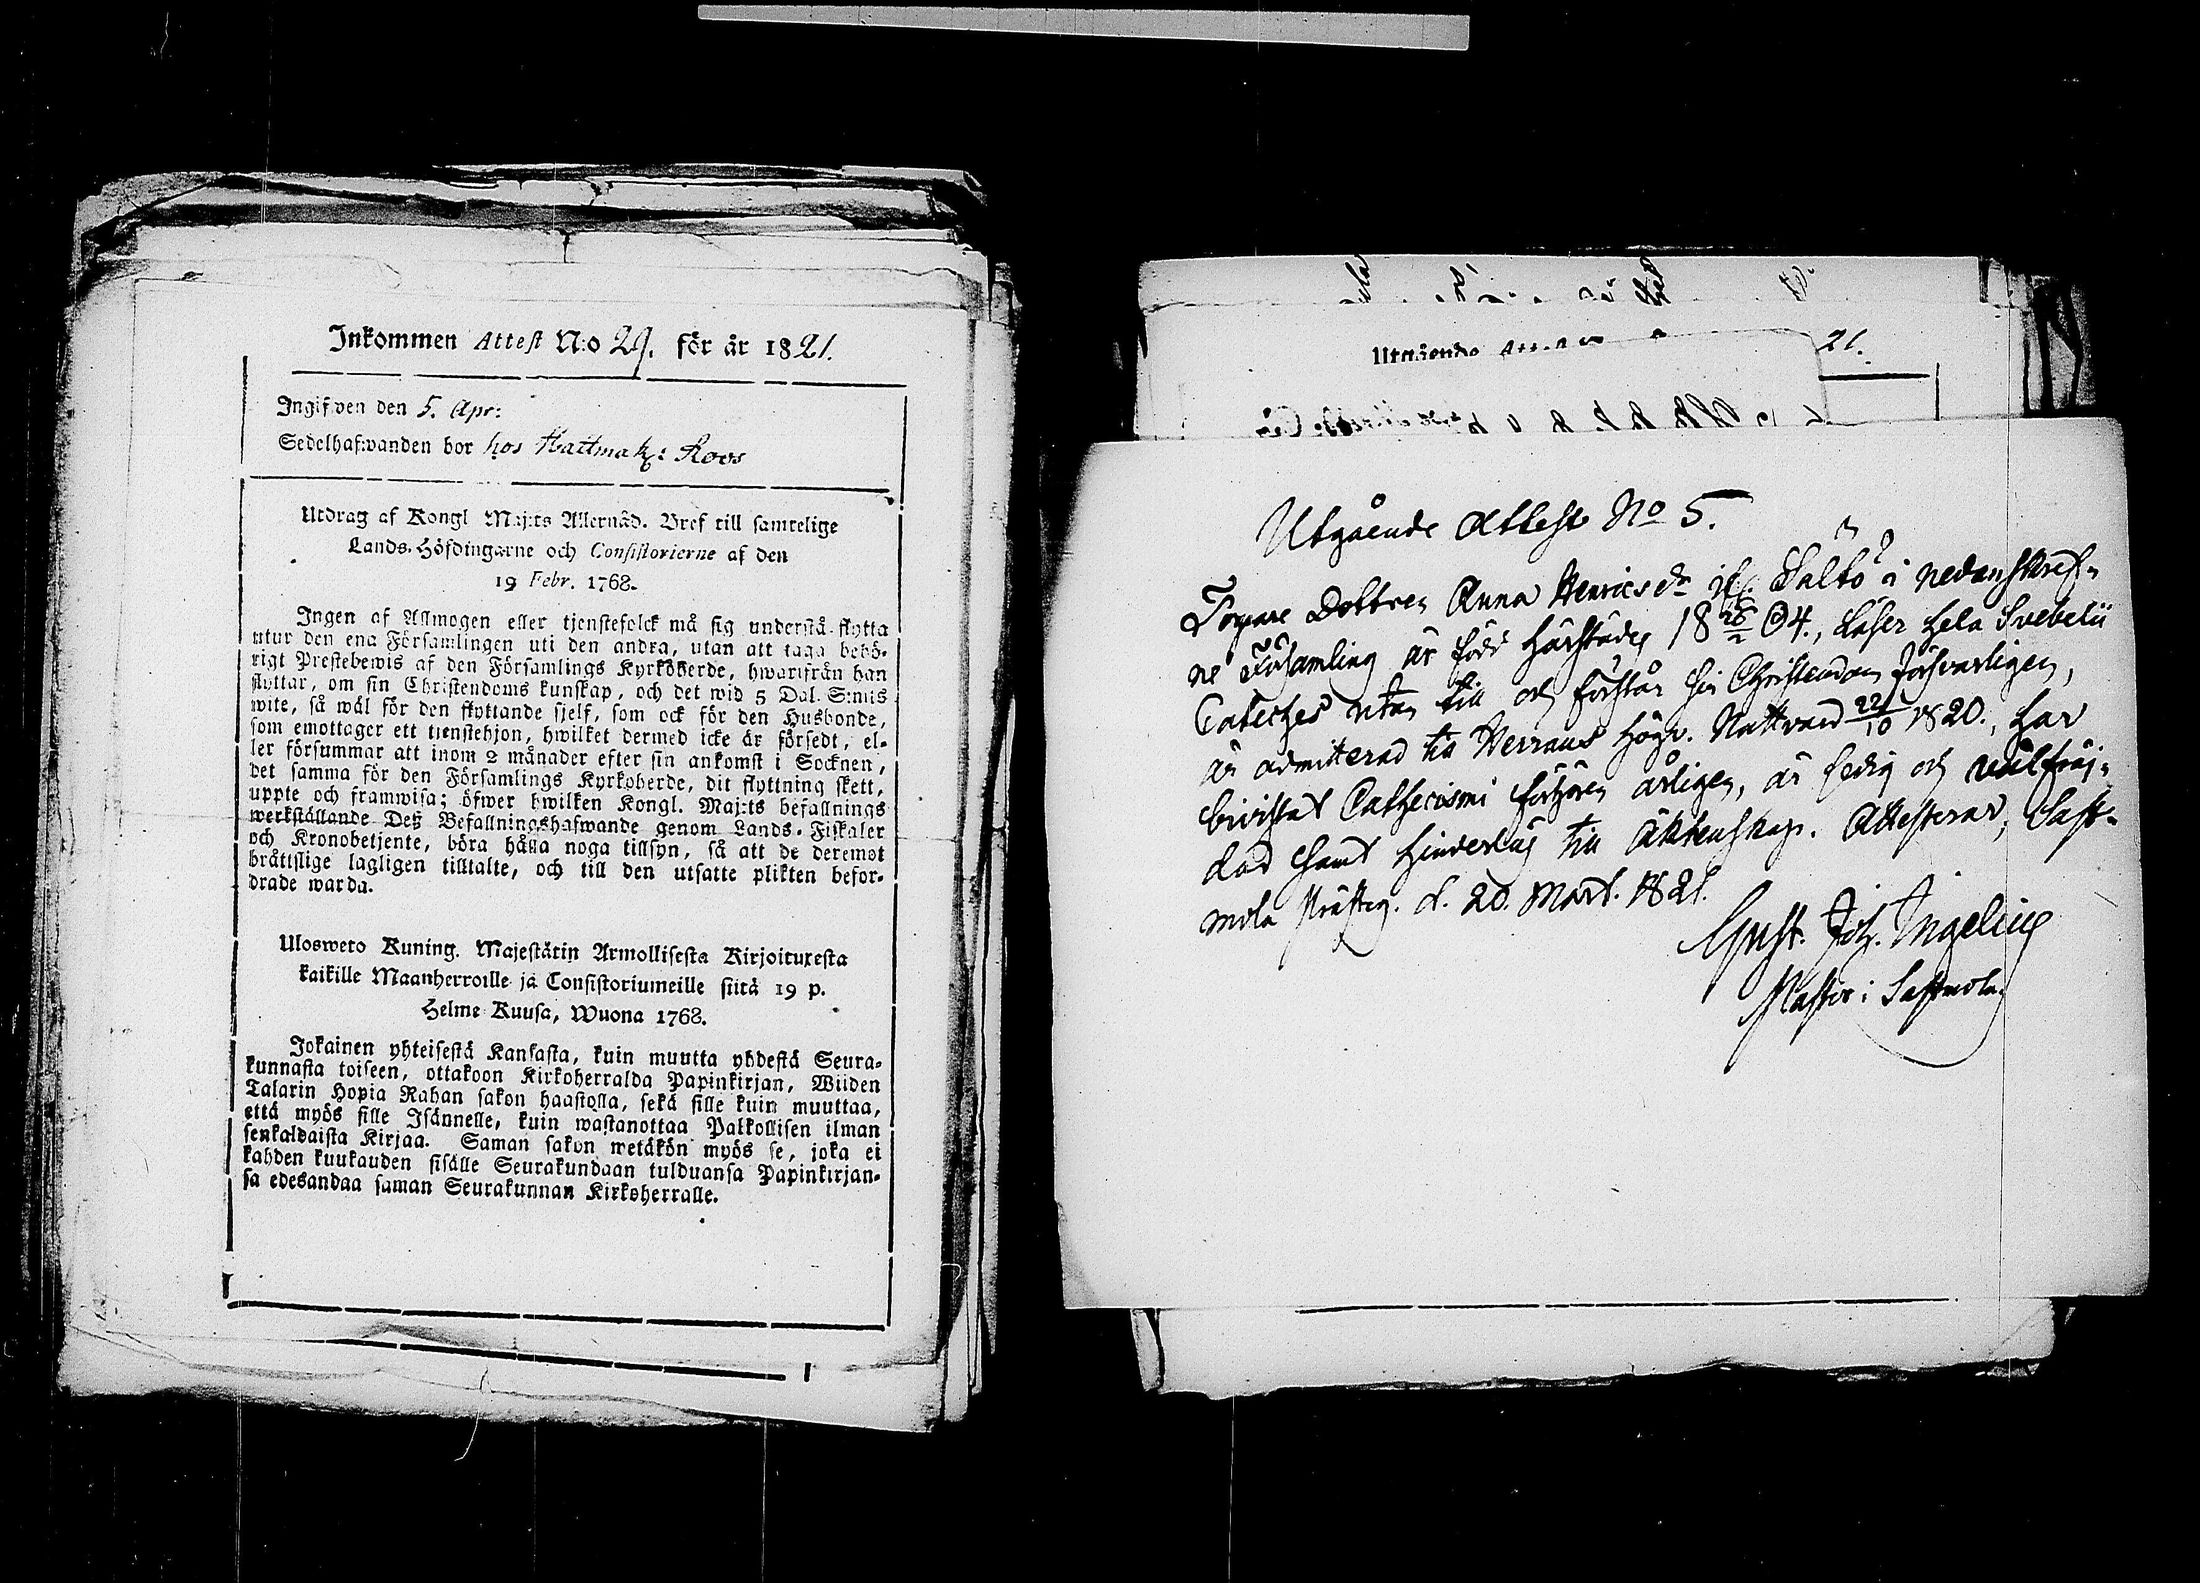 Inkommen Attest N:o 29. för år 1821.
Ingifwen den 5. Apr:
Sedelhafwanden bor hos Hattmak: Roos
Utdrag af Kongl Maj:ts Allernåd. Bref till samtelige
Lands-Höfdingarne och Consistorierne af den
19 Febr. 1768.
Ingen af Allmogen eller tjenstefolck må sig understå flytta
utur den ena Församlingen uti den andra, utan att taga behö-
rigt Prestebewis af den Församlings Kyrkoherde, hwarifrån han
flyttar, om sin Christendoms kunskap, och det wid 5 Dal. S:mts
wite, så wäl för den flyttande sjelf, som ock för den Husbonde,
som emottager ett tjenstehjon, hwilket dermed icke är försedt, el-
ler försummar att inom 2 månader efter sin ankomst i Socknen,
det samma för den Församlings Kyrkoherde, dit flyttning skett,
uppte och framwisa; öfwer hwilken Kongl. Maj:ts befallnings
werkställande Deß Befallningshafwande genom Lands-Fiskaler
och Kronobetjente, böra hålla noga tillsyn, så att de deremot
bråttslige lagligen tilltalte, och till den utsatte plikten befor-
drade warda.
Ulosweto Kuning. Majestätin Armollisesta Kirjoituxesta
kaikille Maanherroille ja Consistoriumeille siitä 19 p.
Helme Kuusa, Wuona 1768.
Jokainen yhteisestä Kansasta, kuin muutta yhdestä Seura-
kunnasta toiseen, ottakoon Kirkoherralda Papinkirjan, Wiiden
Talarin Hopia Rahan sakon haastolla, sekä sille kuin muuttaa,
että myös sille Isännelle, kuin wastanottaa Palkollisen ilman
senkaldaista Kirjaa. Saman sakon wetäkön myös se, joka ei
kahden kuukauden sisälle Seurakundaan tulduansa Papinkirjan-
sa edesandaa saman Seurakunnan Kirkoherralle.
Utgående
21.
Utgående Attest No 5.
Torpare Dottren Anna Henricsdr Saltö i nedanskref-
ne Församling är född härstädes 18 28/2 04., läser hela Svebelii
Cateches utan till och förstår sin Christendom försvarligen,
är admitterad til Herrans Högv. Nattvard 22/10 1820., har
bivistat Cathecismi förhören årligen, är ledig och välfräj-
dad samt hinderlös till Äktenskap. Attesterar, Sast-
mola Prästeg. d. 20. Mart. 1821.
Gust. Joh. Ingelius
Pastor i Sastmola